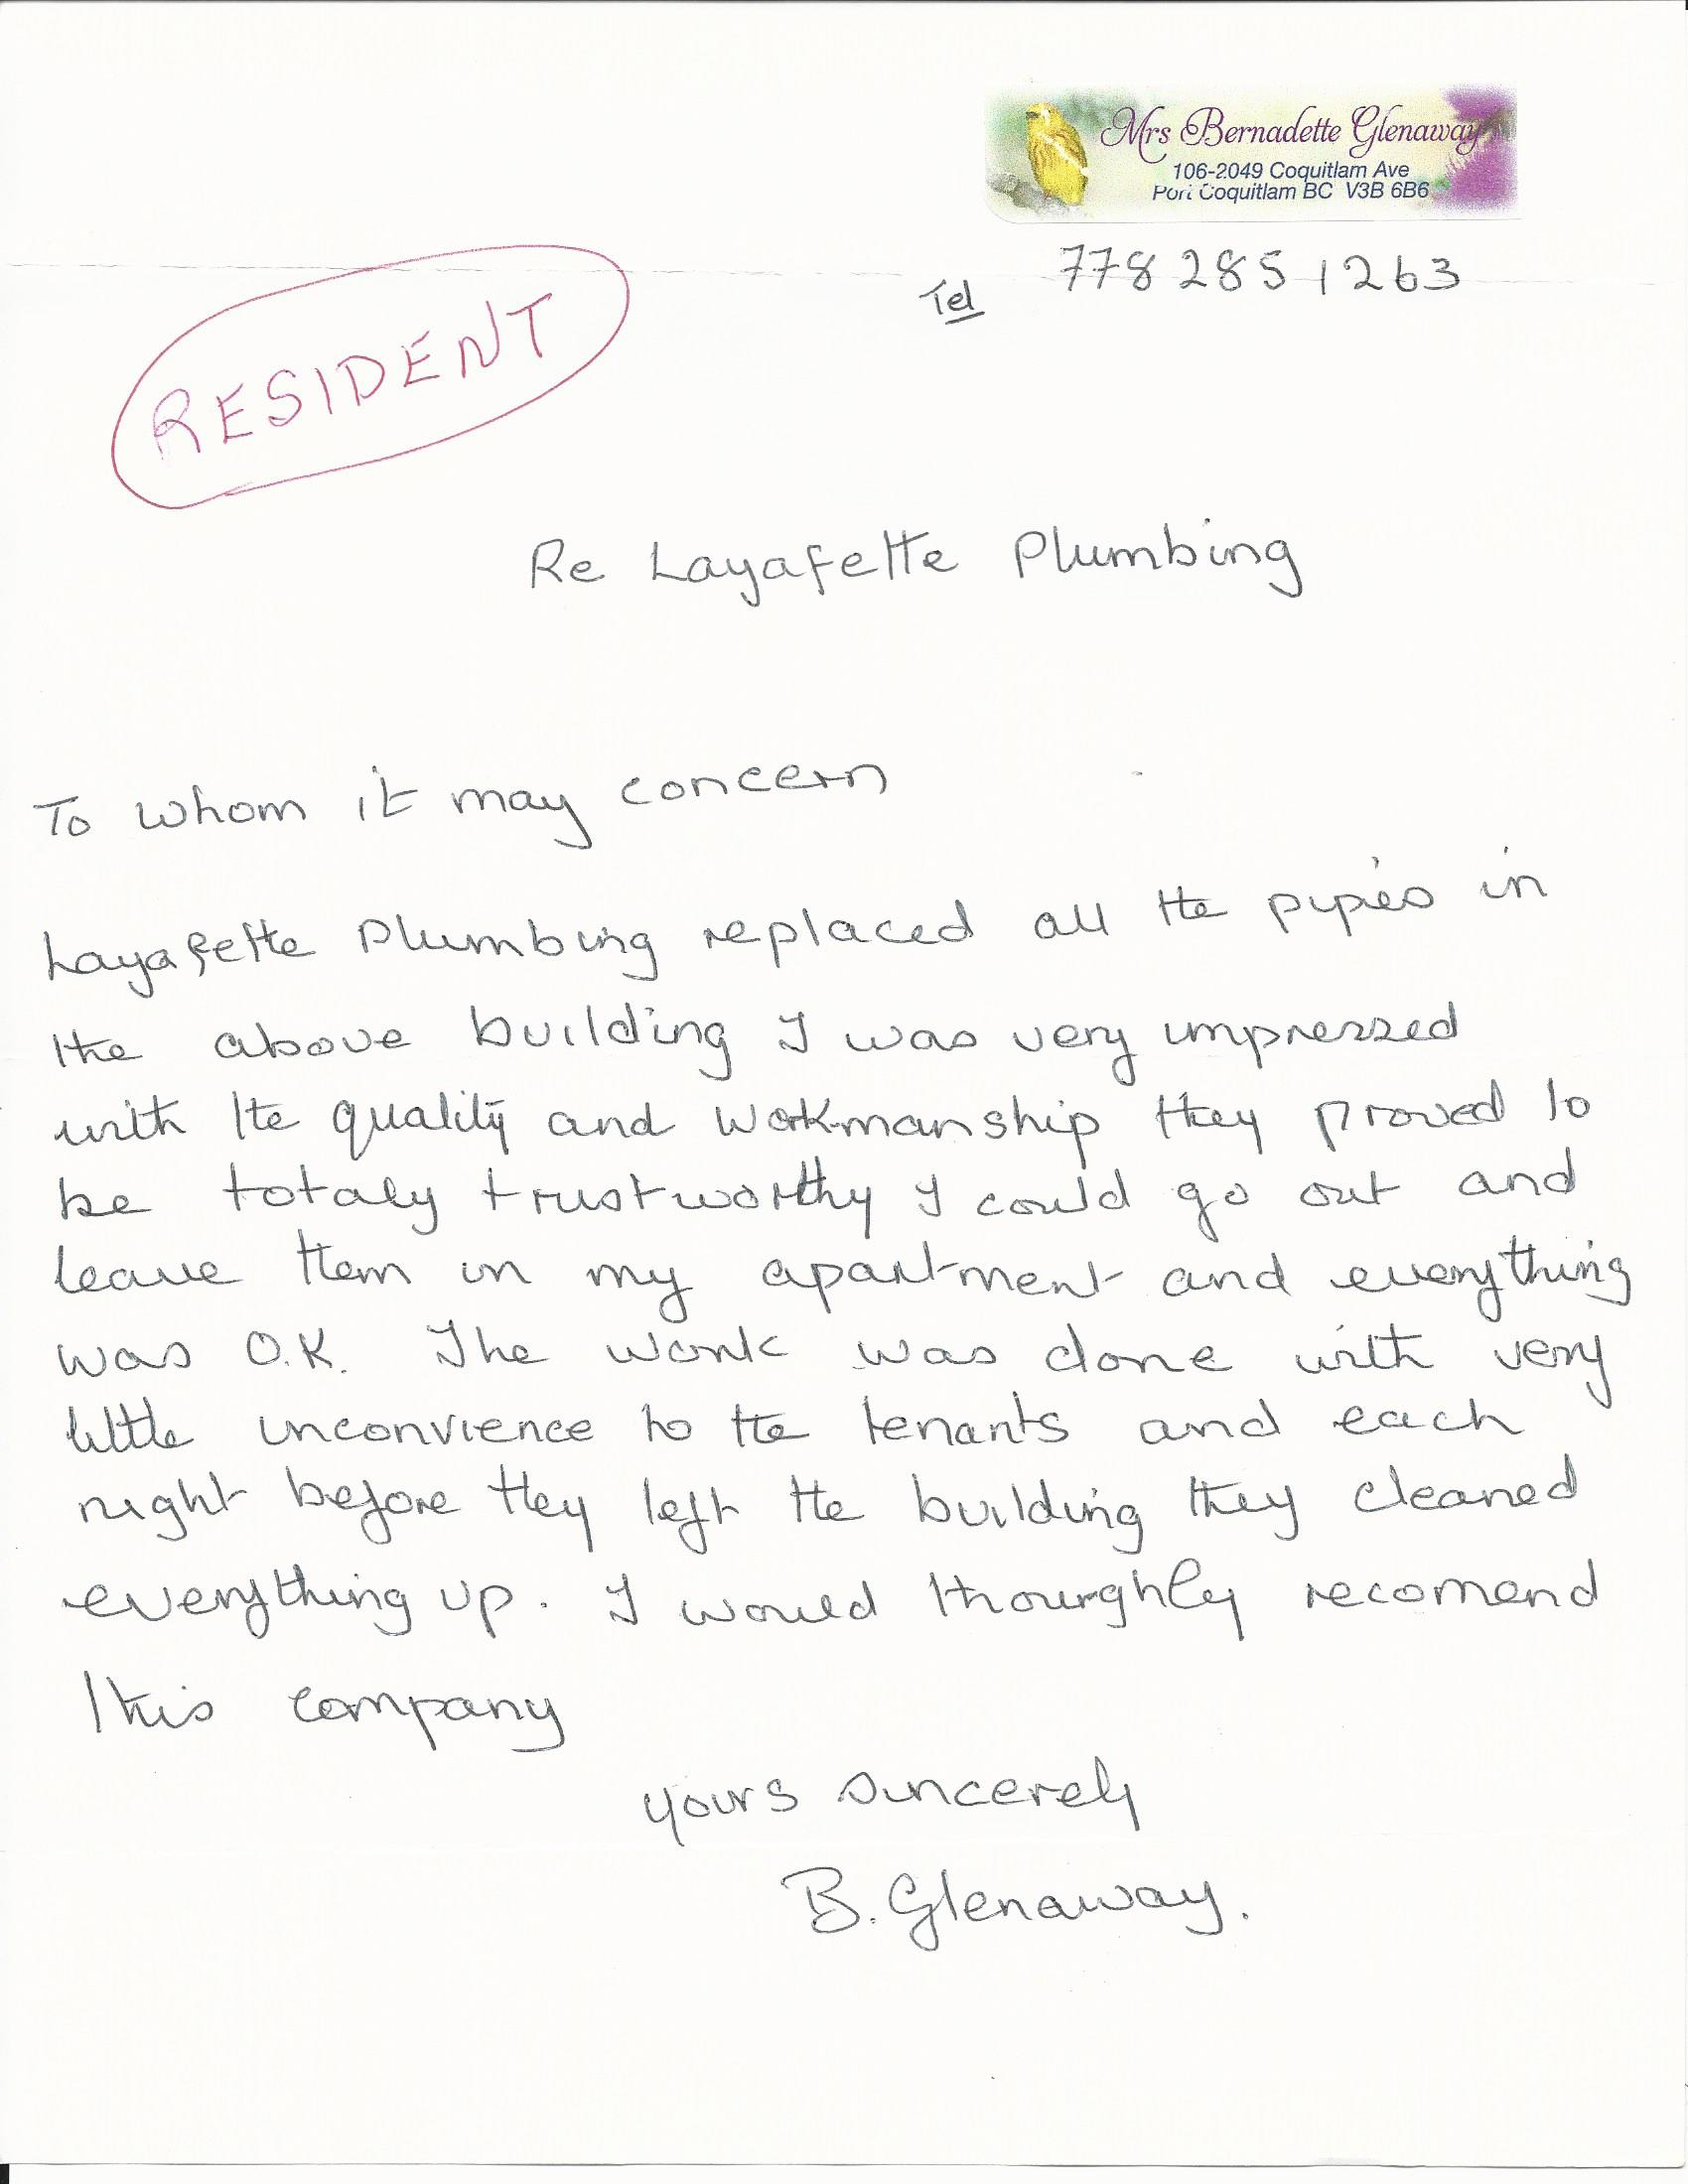 Mrs Bernadette Glenaway
106-2049 Coquitlam Ave
Port Coquitlam BC V3B 6B6
Tel 778 285 1263
RESIDENT
Re Layafette Plumbing
To whom it may concern
Layafette Plumbing replaced all the pipes in
the above building I was very impressed
with the quality and workmanship they proved to
be totaly trustworthy I could go out and
leave them in my apartment and everything
was O.K. The work was done with very
little inconvience to the tenants and each
night before they left the building they cleaned
everything up. I would thourghly recomend
this company
yours sincerely
B. Glenaway.